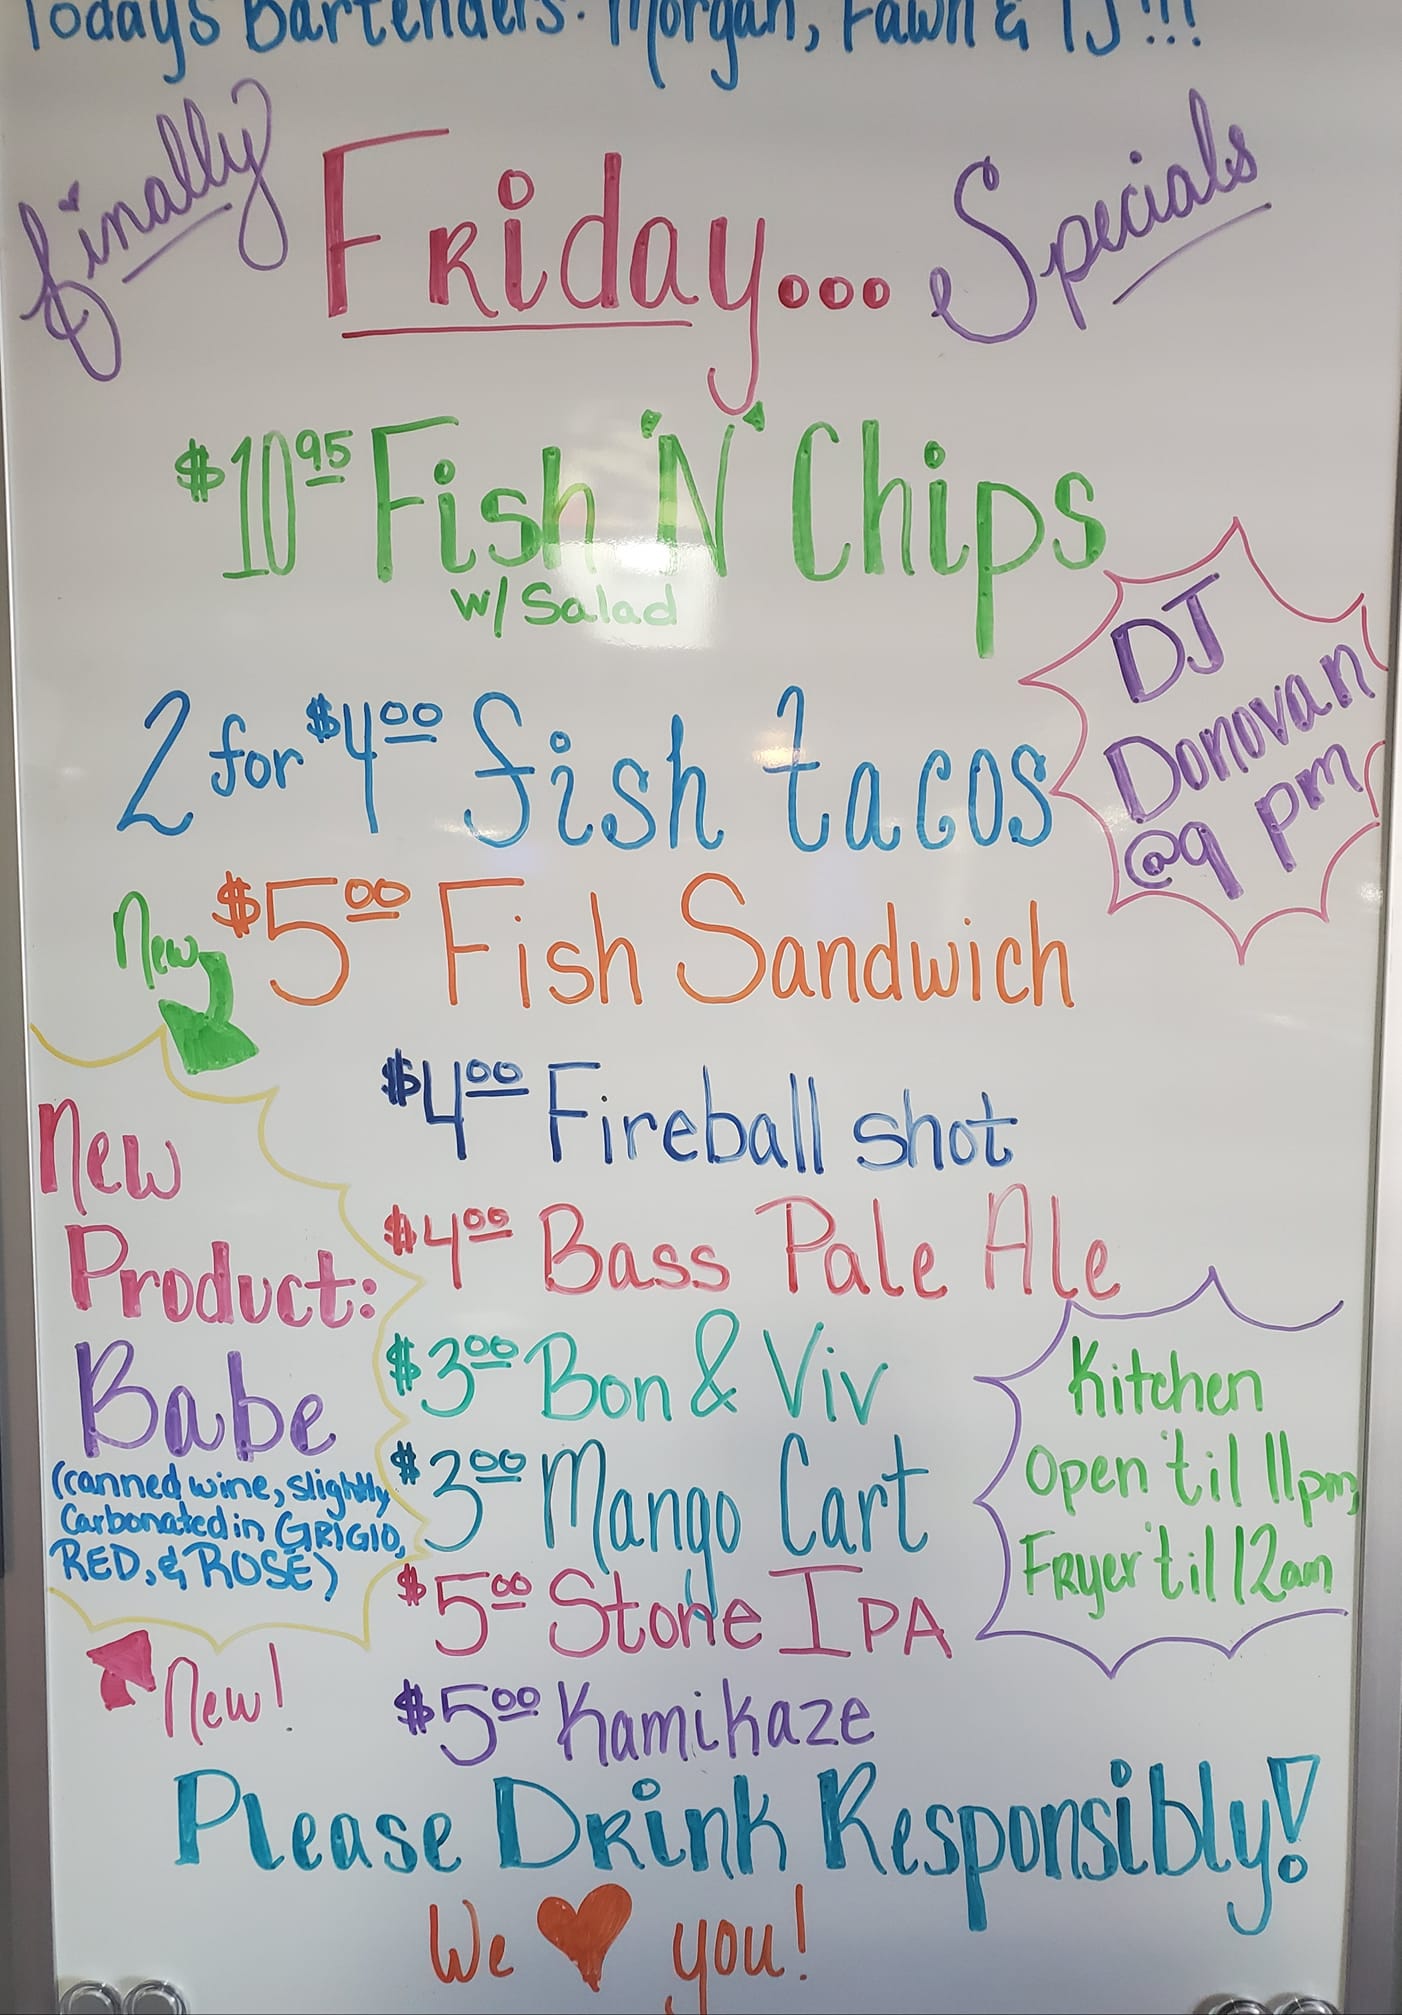 Todays Bartenders: Morgan, Fawn & TJ!!!
finally Friday... Specials
$10.95 Fish 'N' Chips
w/ Salad
DJ
Donovan
@9 pm
2 for $4.00 fish tacos
$5.00 Fish Sandwich
New
$4.00 Fireball shot
$4.00 Bass Pale Ale
$3.00 Bon & Viv
$3.00 Mango Cart
$5.00 Stone IPA
$5.00 Kamikaze
New
Product:
Babe
(canned wine, slightly
Carbonated in GRIGIO,
RED, & ROSÉ)
New!
Kitchen
Open 'til 11pm,
Fryer 'til 12am
Please Drink Responsibly!
We ♥ you!